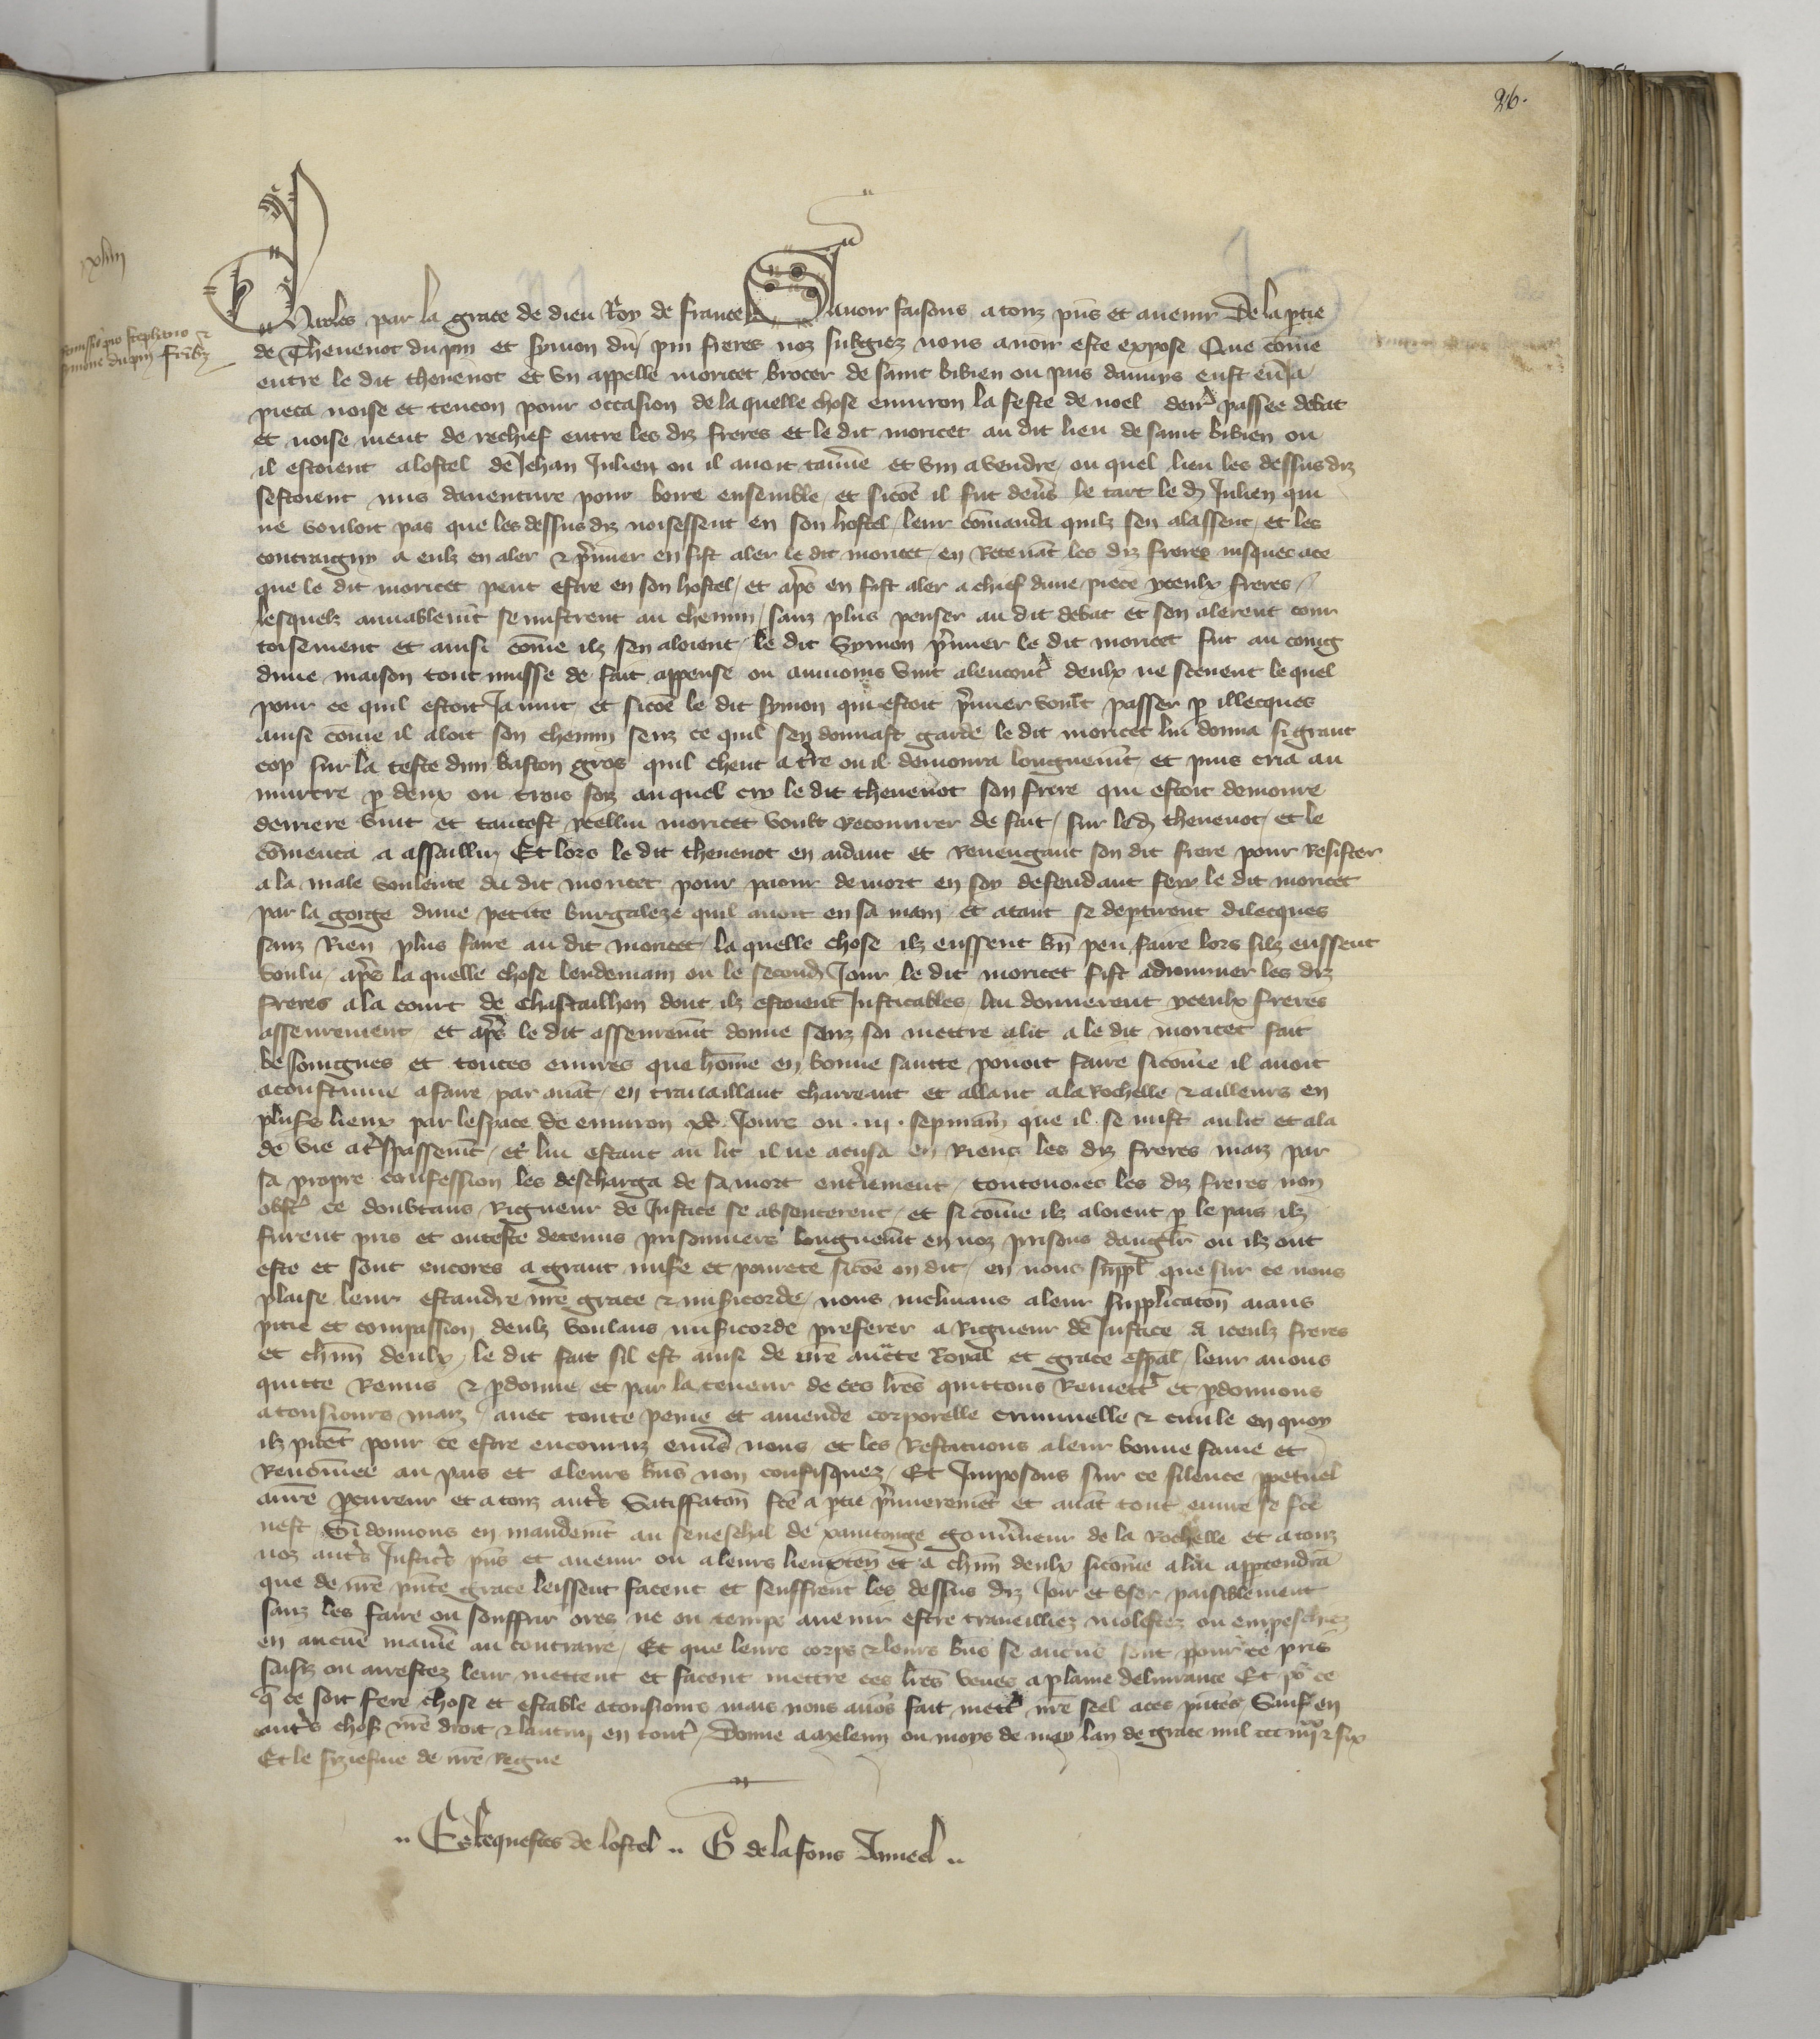 26.
xxxiiij
Remissio pro Stephano et
Simone du pin fratribz
Charles par la grace de dieu Roy de france Sauoir faisons a touz pns et auenir De la ptie
de Theuenot du pin et Symon du pin freres noz subgiez nous auoir este expose Que come
entre le dit theuenot et vn appelle moricet brocer de saint bibien ou pais daunys eust eu Ja
pieca noise et tencon pour occasion de la quelle chose enuiron la feste de noel derr passee debat
et noise ment de rechief entre les diz freres et le dit moricet au dit lieu de saint bibien ou
il estoient a lostel de Jehan Julien ou il auoit tauerne et vin a vendre ou quel lieu les dessus diz
sestoient mis dauenture pour boire ensemble et sicoe il fut deuers le tart le d Julien qui
ne vouloit pas que les dessus diz noisessent en son hostel leur comanda quilz sen alassent et les
contraigny a eulz en aler et primier en fist aler le dit moricet en Retenat les diz freres jusques ace
que le dit moricet peut estre en son hostel et apres en fist aler a chief dune piece yceulx freres
lesquelz amiablemt se mistrent au chemin sanz plus penser au dit debat et sen alerent cour
toisement et ainsi come ilz sen aloient le dit Symon primier le dit moricet fut au coing
dune maison tout musse de fait appense ou aumoins vint alencontre deulx ne sceuent le quel
pour ce quil estoit Ja nuit et sicoe le dit symon qui estoit primier voult passer p illecques
ainsi come il aloit son chemin senz ce quil sen donnast garde le dit moricet lui donna si grant
cop sur la teste dun baston gros quil cheut a tre ou il demoura longuemt et puis cria au
murtre p deux ou trois foiz auquel cry le dit theuenot son frere qui estoit demoure
derriere vint et tantost ycellui moricet voult recourrer de fait sur le d theuenot et le
comenca a assaillir Et lors le dit theuenot en aidant et Reuengant son dit frere pour Resister
a la male voulente du dit moricet pour paour de mort en soy defendant fery le dit moricet
par la gorge dune petite burgaleze quil auoit en sa main et atant se deptirent dilecques
sanz Rien plus faire au dit moricet la quelle chose ilz eussent bn peu faire lors silz eussent
voulu apres la quelle chose lendemain ou le second Jour le dit moricet fist adiourner les diz
freres a la court de Chastaillon dont ilz estoient Justicables lui donnerent yceulx freres
asseurement et apres le dit asseuremt donne senz soi mettre a lit a le dit moricet fait
besoingnes et toutes euures que home en bonne sante pouoit faire sicome il auoit
acoustume a faire par auat en trauaillant charreant et allant a la Rochelle et ailleurs en
plusrs lieux par lespace de enuiron xv Jours ou iij sepmains que il se mist au lit et ala
de vie a trespassemt et lui estant au lit il ne acusa en Riens les diz freres maiz par
sa propre confession les descharga de sa mort entierement toutenoies les diz freres non
obstat ce doubtans Rigueur de Justice se absenterent et si come ilz aloient p le pais ilz
furent pris et ont este detenus prisonniers longuemt en noz prisons dangler ou ilz ont
este et sont encores a grant mise et pourete sicoe on dit en nous suppl que sur ce nous
plaise leur estandre nre grace et misicorde nous inclinans a leur supplicaton aians
pitie et compassion deulz voulans misicorde preferer a Rigueur de Justice a iceulz freres
et chun deulx le dit fait sil est ainsi de nre aucte Royal et grace espal leur auons
quitte Remis et pdonne et par la teneur de ces lres quittons Remett et pdonnons
atousiours maiz auec toute peine et amende corporelle criminelle et ciuile en quoy
ilz puet pour ce estre encouruz enuers nous et les Restituons a leur bonne fame et
Renomee au pais et a leurs bns non confisquez Et Imposons sur ce silence ppetuel
a nre pcureur et a touz autrs Satiffaton fce a ptie primieremet et auat tout euure se fce
nest Si donnons en mandemt au seneschal de xaintonge gouuneur de la Rochelle et a touz
noz autrs Justicrs pns et auenir ou a leurs lieuxten et a chun deulx sicome a lui apptendra
que de nre pnte grace leissent facent et seuffrent les dessus diz Joir et vser paisiblement
sanz les faire ou souffrir ores ne ou temps auenir estre traueilliez molestez ou empeschiez
en aucune manie au contraire Et que leurs corps et leurs bns se aucus sont pour ce pris
saisiz ou arrestez leur mettent et facent mettre ces lres veues a plaine deliurance Et po ce
q ce soit ferme chose et estable atousiours mais nous auos fait mett nre seel a ces pntes Sauf en
autrs choses nre droit et lautruy en tout Donne a meleun ou moys de may lan de grace mil ccc iiijxx et six
Et le sziesme de nre Regne
Es Requestes de lostel G de la fons Daniel